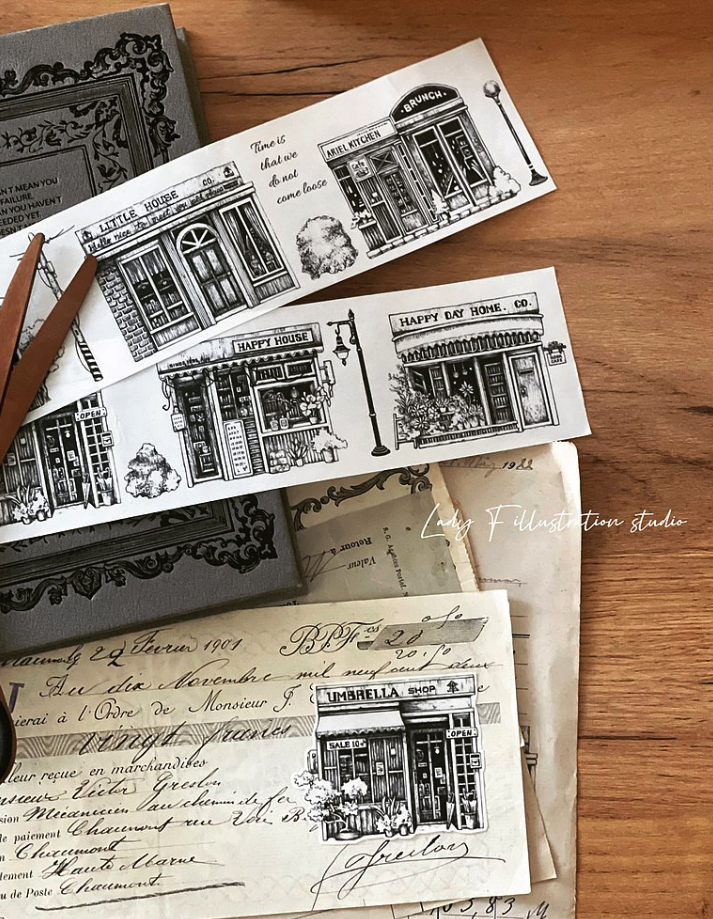 N'T MEAN YOU
FAILURE.
AN YOU HAVEN'T
CEEDED YET.
DOESN'T
Time is
that we
do not
come loose
BRUNCH
ARIEL KITCHEN
LITTLE HOUSE CO.
Hello nice to meet you
HAPPY HOUSE
HAPPY DAY HOME. CO.
OPEN
1922
Lady F illustration studio
Retour à
Valeur
22 Février 1901
BPF 20
Au dix Novembre mil neuf cent deux
ierai à l'Ordre de Monsieur J.
vingt francs
leur reçue en marchandises
nsieur Victor Greslon
sion Mécanicien au chemin de fer
de paiement Chaumont rue
Chaumont
tement Haute Marne
u de Poste Chaumont
UMBRELLA SHOP
SALE 10%
OPEN
Greslon